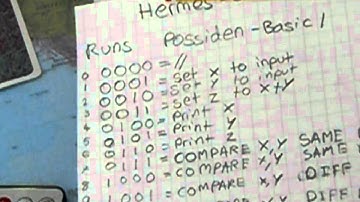 Hermes
Runs Possiden-Basic 1
0 0000 = //
1 0001 = Set X to input
2 0010 = Set Y to input
3 0011 = Set Z to X+Y
4 0100 = Print X
5 0101 = Print Y
6 0110 = Print Z
0111 = COMPARE X,Y SAME
8 1000 = COMPARE X,Y SAME
1001 = COMPARE X,Y DIFF
DIFF